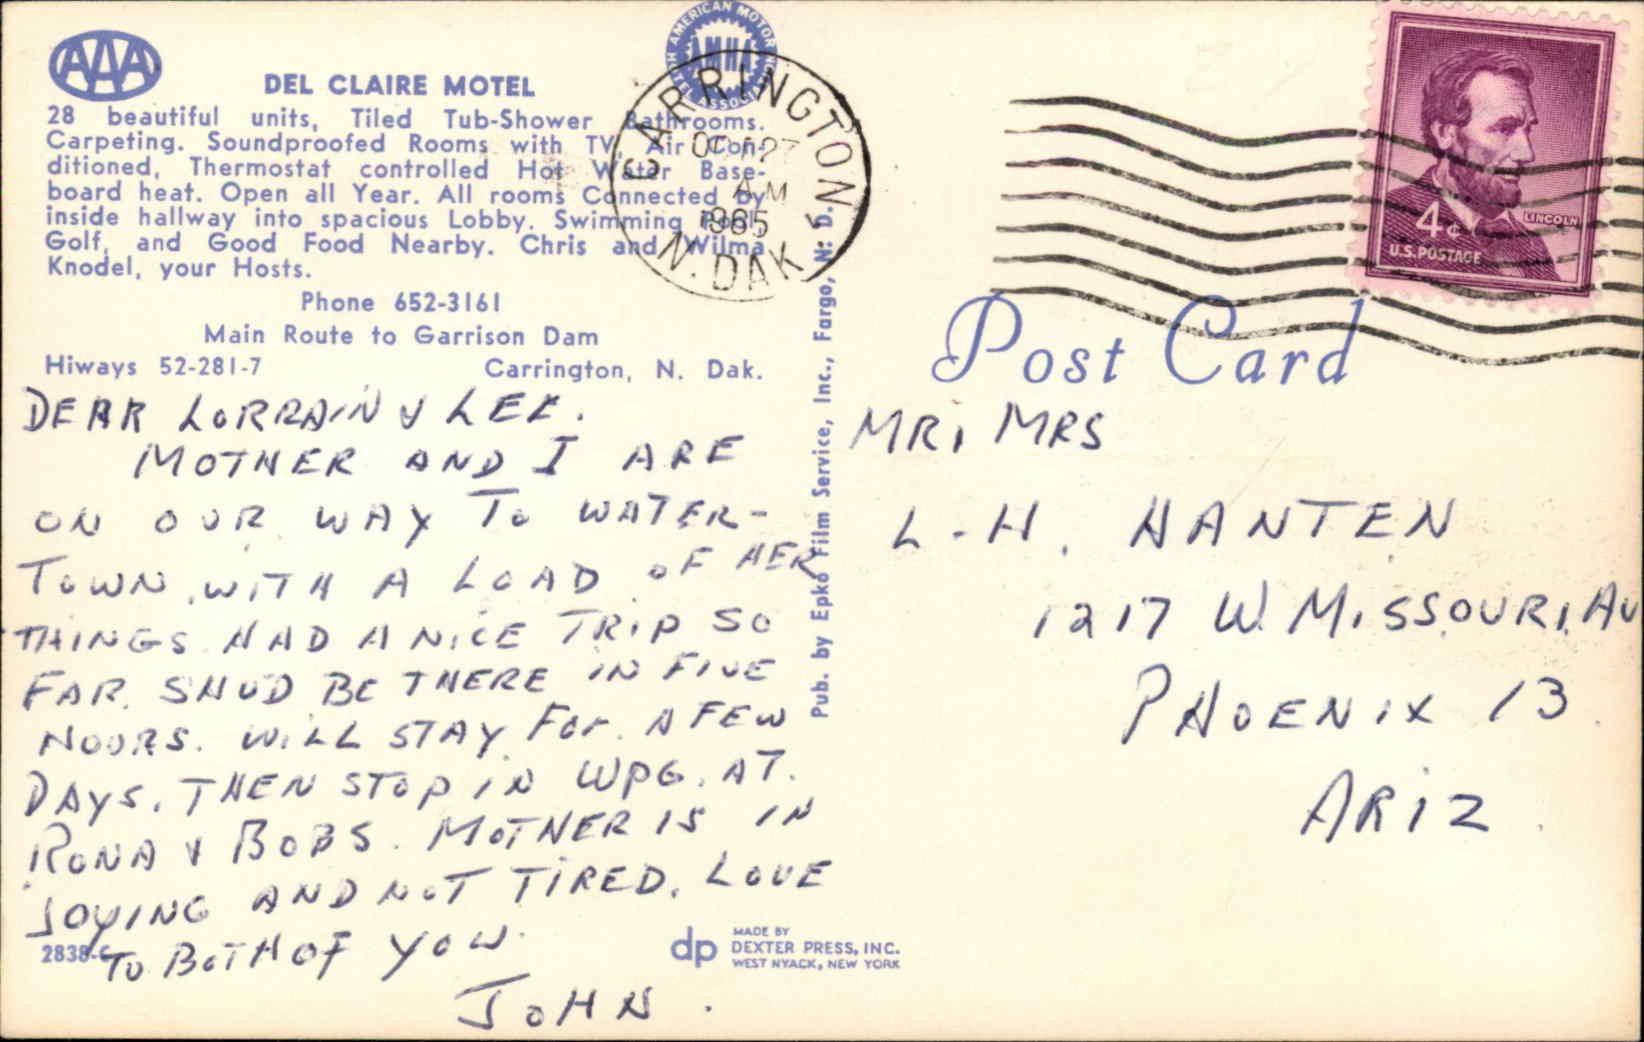 AAA
DEL CLAIRE MOTEL
28 beautiful units, Tiled Tub-Shower Bathrooms.
Carpeting. Soundproofed Rooms with TV, Air Con-
ditioned, Thermostat controlled Hot Water Base-
board heat. Open all Year. All rooms Connected by
inside hallway into spacious Lobby. Swimming Pool,
Golf, and Good Food Nearby. Chris and Wilma
Knodel, your Hosts.
Phone 652-3161
Main Route to Garrison Dam
Hiways 52-281-7 Carrington, N. Dak.
DEAR LORRAIN & LEE.
MOTHER AND I ARE
ON OUR WAY TO WATER-
TOWN. WITH A LOAD OF HER
THINGS HAD A NICE TRIP SO
FAR. SHUD BE THERE IN FIVE
HOURS. WILL STAY FOR A FEW
DAYS. THEN STOP IN WPG. AT.
RONA & BOBS. MOTHER IS IN
JOYING AND NOT TIRED. LOVE
TO BOTH OF YOU.
JOHN.
2838-C
AMERICAN MOTOR
AMHA
CARRINGTON
OCT 27
AM
1965
N. DAK
Pub. by Epko Film Service, Inc., Fargo, N. D.
dp
MADE BY
DEXTER PRESS, INC.
WEST NYACK, NEW YORK
LINCOLN
4¢
U.S. POSTAGE
Post Card
MR, MRS
L-H. HANTEN
1217 W. MISSOURI. AV
PHOENIX 13
ARIZ.